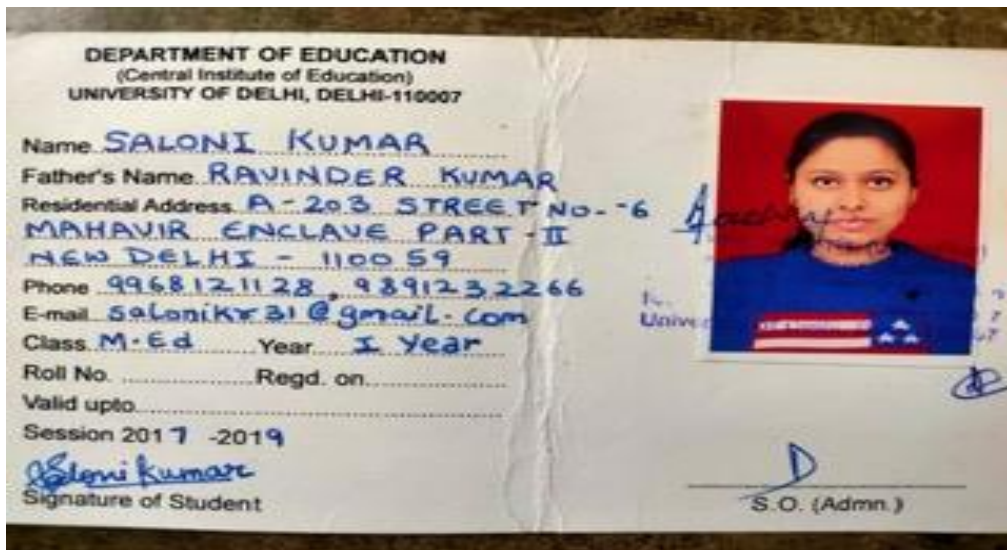 DEPARTMENT OF EDUCATION
(Central Institute of Education)
UNIVERSITY OF DELHI, DELHI-110007
Name SALONI KUMAR
Father's Name RAVINDER KUMAR
Residential Address A-203 STREET NO.-6
MAHAVIR ENCLAVE PART-II
NEW DELHI - 110059
Phone 9968121128, 9891232266
E-mail salonikr31@gmail.com
Class M.Ed Year I Year
Roll No. Regd. on
Valid upto
Session 2017-2019
Saloni Kumar
Signature of Student
S.O. (Admn.)